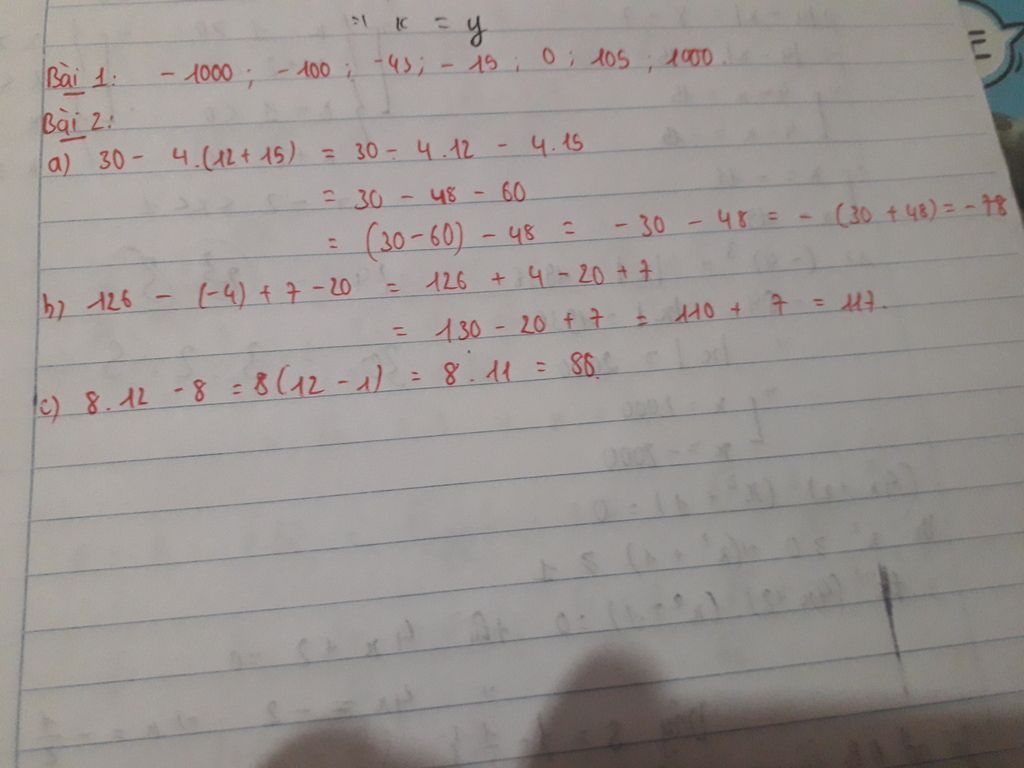 => x = y
Bài 1: - 1000 ; - 100 ; -43 ; - 15 ; 0 ; 105 ; 1000.
Bài 2:
a) 30 - 4.(12 + 15) = 30 - 4.12 - 4.15
= 30 - 48 - 60
= (30 - 60) - 48 = - 30 - 48 = - (30 + 48) = - 78
b) 126 - (-4) + 7 - 20 = 126 + 4 - 20 + 7
= 130 - 20 + 7 = 110 + 7 = 117.
c) 8.12 - 8 = 8(12 - 1) = 8.11 = 88.